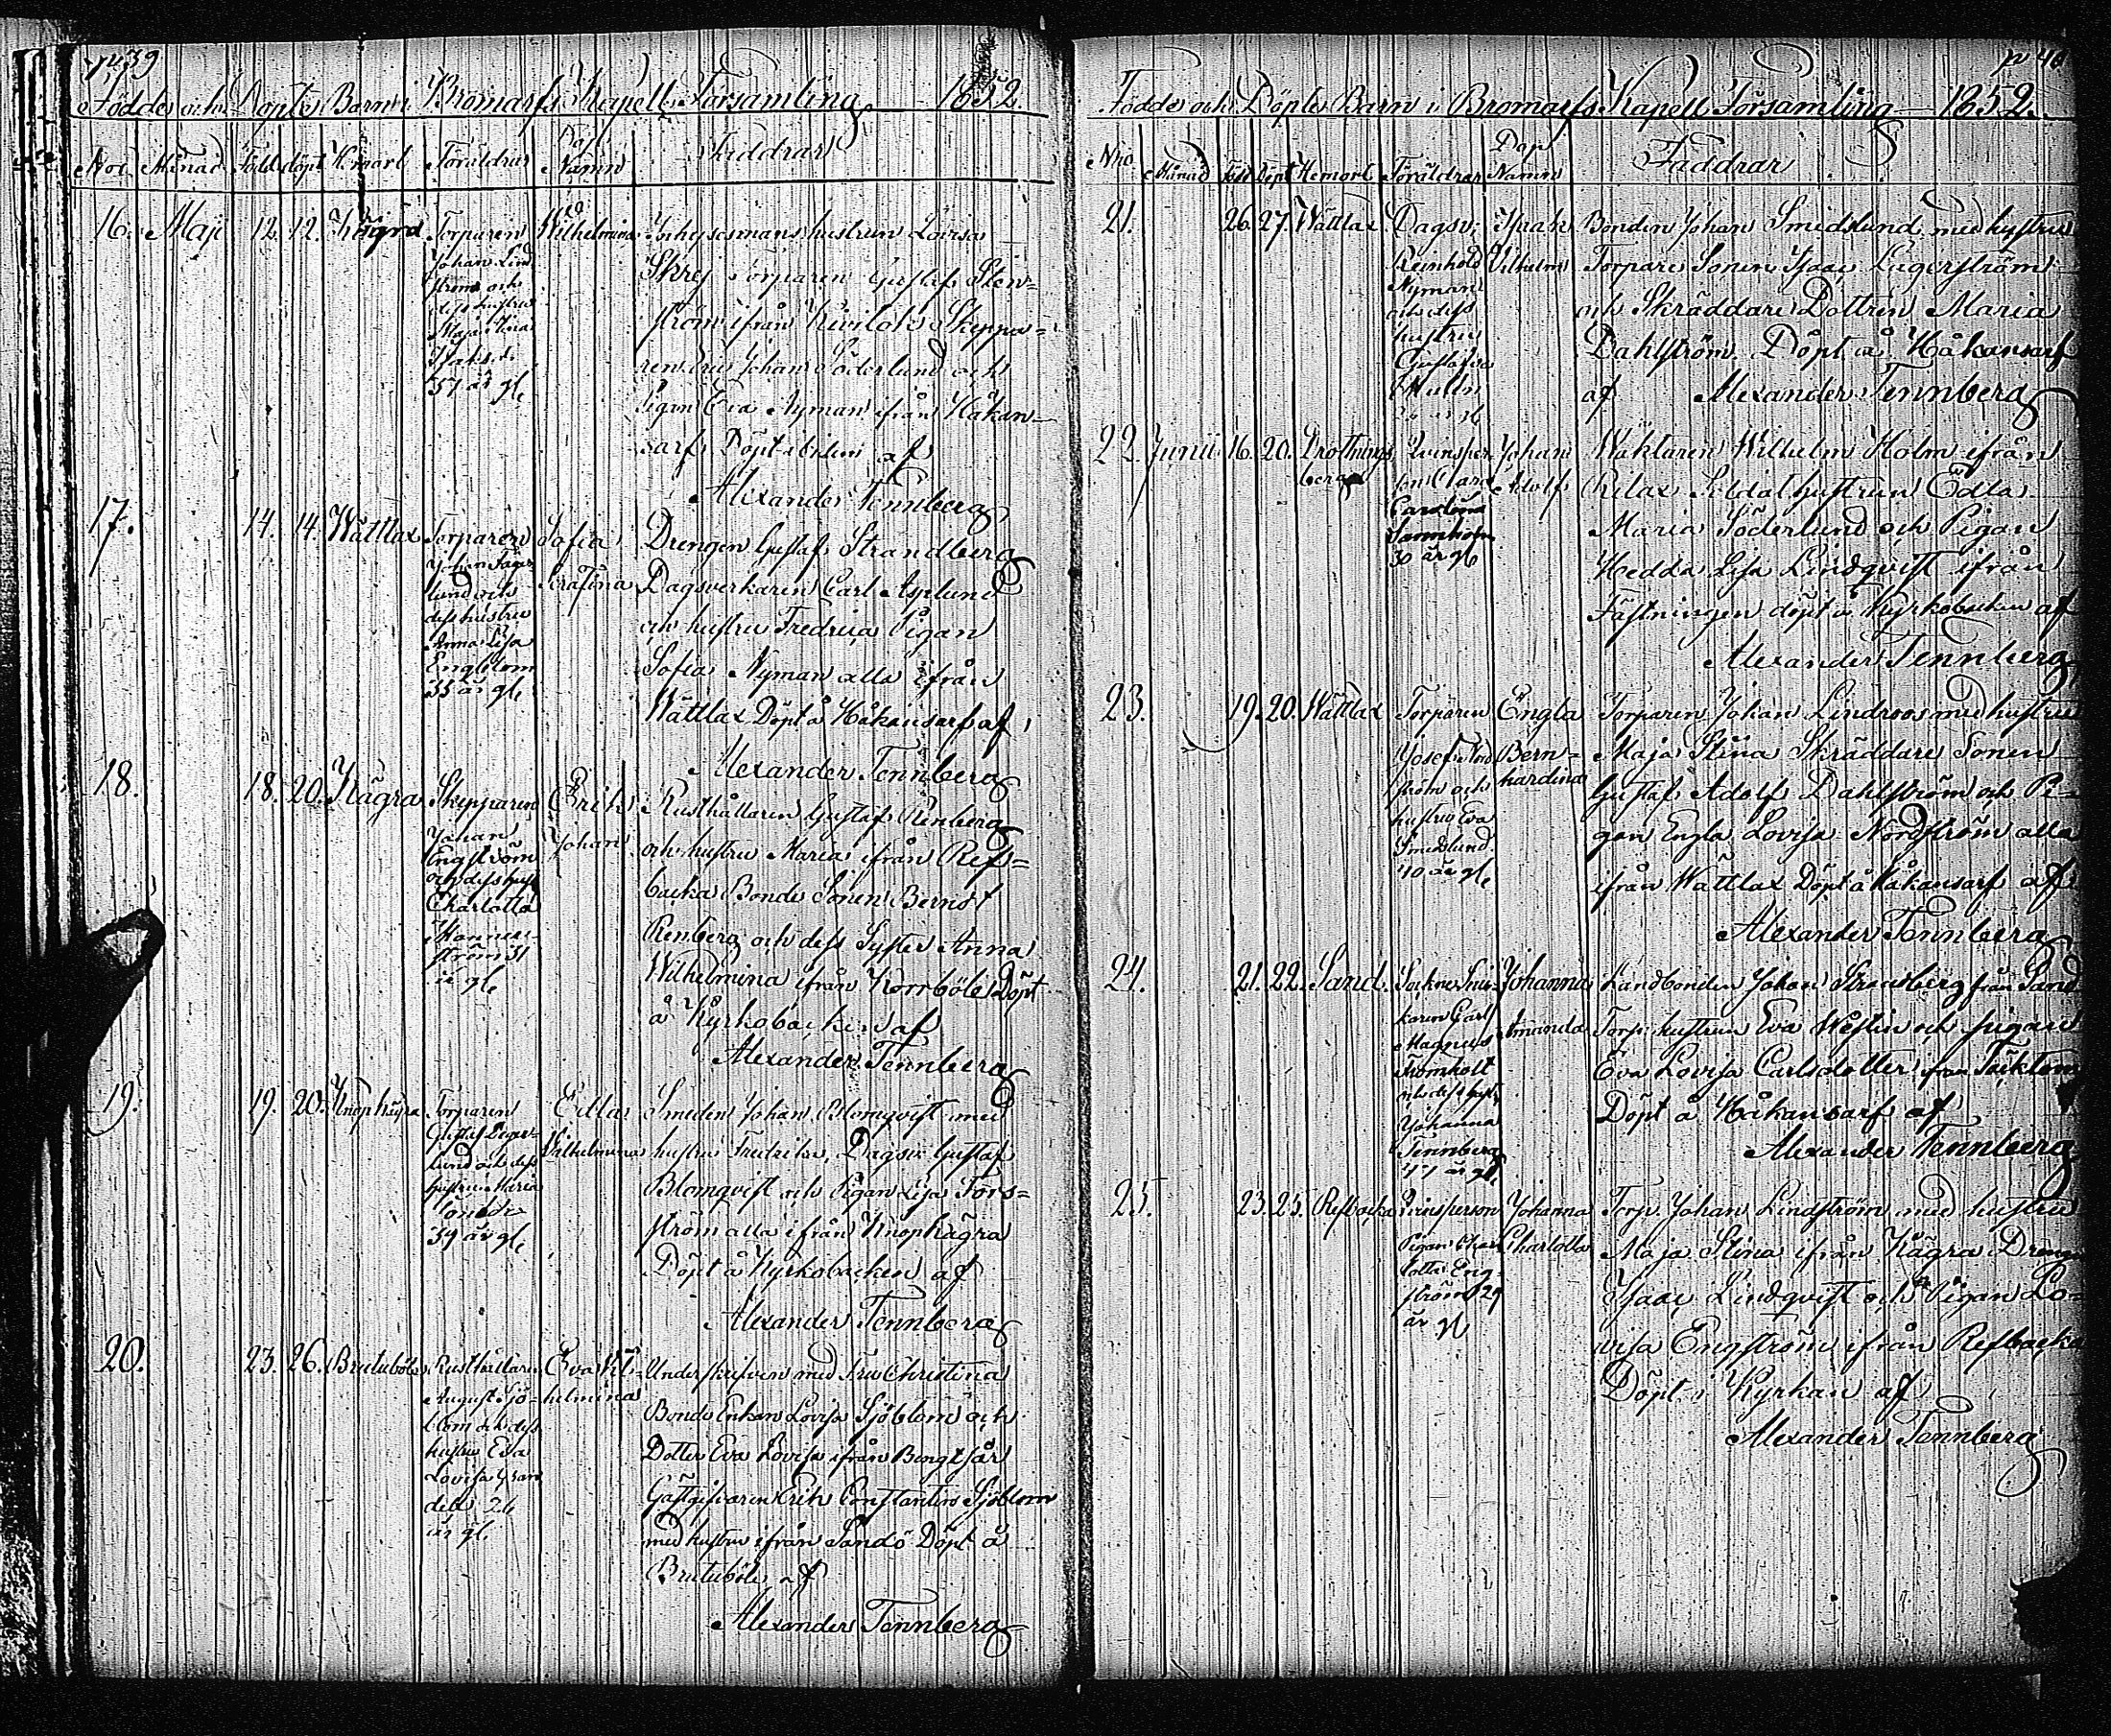 p. 39
Födde och Döpte Barn i Bromarfs Kapell Församling 1852
Nro Månad Född döpt Hemort Föräldrar Dop Namn Faddrar
16. Maji 12. 12. Kägra Torparen Johan Lindström och dess hustru Maja Stina år gl. Wilhelmina
Inhysesmans hustrun Lovisa
Skrej Torparen Gustaf Sten-
ström ifrån Skeppa-
ren Johan Söderlund och
Pigan Eva Nyman ifrån Håkan-
sarf Döpt af
Alexander Tennberg
17. 14. 14. Wättlax Torparen Johan Fager-
lund och
dess hustru
Anna Lisa
Engblom
35 år gl. Sofia
Serafina
Drengen Gustaf Strandberg
Dagsverkaren Carl Asplund
och hustru Fredrica Pigan
Sofia Nyman alla ifrån
Wättlax Döpt å Håkansarf af
Alexander Tennberg
18. 18. 20. Kägra Skepparen
Johan
Engström
och dess hust
Charlotta
ström 31
år gl. Erik
Johan
Rusthållaren Gustaf Renberg
och hustru Maria ifrån Refs-
backa Bonde Sonen Berndt
Renberg och dess Syster Anna
Wilhelmina ifrån Norrböle Döpt
å Kyrkobacken af
Alexander Tennberg
19. 19. 20. Knopkägra Torparen
Gustaf Deger-
lund och dess
hustru Maria
39 år gl. Edla
Vilhelmina
Smeden Johan Blomqvist med
hustru Fredrika, Dagsv. Gustaf
Blomqvist och Pigan Lisa Fors-
ström alla ifrån Knopkägra
Döpt å Kyrkobacken af
Alexander Tennberg
20. 23. 26. Bruteböle Rusthållaren
August Sjö-
blom och dess
hustru Eva
Lovisa Gran-
dell 26
år gl. Eva Vil-
helmina
Underskrifven med Fru Christina
Bonde Enkan Lovisa Sjöblom och
Dotter Eva Lovisa ifrån Bengtsår
Gästgifvaren Erik Constantin Sjöblom
med hustru ifrån Sandö Döpt å
Bruteböle af
Alexander Tennberg
p. 40
Födde och Döpte Barn i Bromarfs Kapell Församling 1852.
Nro Månad född Döpt Hemort Föräldrar Dop Namn Faddrar
21. 26. 27. Wättlax Dagsv.
Reinhold
Nyman
och dess
hustru
Gustafva
år gl. Isaak
Vilhelm
Bonden Johan Smidslund med hustru
Torpare Sonen Isaac Lagerström
och Skräddare Dottren Maria
Dahlström Döpt å Håkansarf
af Alexander Tennberg
22. Junii 16. 20. Drottning-
berg Qvinsper-
son Clara
Carolina
Sannholm
30 år gl. Johan
Adolf
Wäktaren Wilhelm Holm ifrån
Rilax Soldat hustrun Edla
Maria Söderlund och Pigan
Hedda Lisa Lindqvist ifrån
Fästningen döpt å Kyrkobacken af
Alexander Tennberg
23. 19. 20. Wättlax Torparen
Josef Nord-
ström och
hustru Eva
Smidslund
40 år gl. Engla
Bern-
hardina
Torparen Johan Lindroos med hustru
Maja Stina Skräddare Sonen
Gustaf Adolf Dahlström och Pi-
gan Engla Lovisa Nordström alla
ifrån Wättlax Döpt å Håkansarf af
Alexander Tennberg
24. 21. 22. Sand. Sockne Snic-
karen Carl
Magnus
Fromholt
och dess hust.
Johanna
Tennberg
år gl. Johanna
Amanda
Landbonden Johan Strandberg från Sand
Torp. hustrun Eva Westin och pigan
Eva Lovisa Carlsdotter från Täcktom
Döpt å Håkansarf af
Alexander Tennberg
25. 23. 25. Refbacka Qvinsperson
Pigan Char-
lotta Eng-
ström 29
år gl Johanna
Charlotta
Torp. Johan Lindström med hustru
Maja Stina ifrån Kägra Drengen
Isaac Lindqvist och Pigan Lo-
visa Engström ifrån Refbacka
Döpt i Kyrkan af
Alexander Tennberg